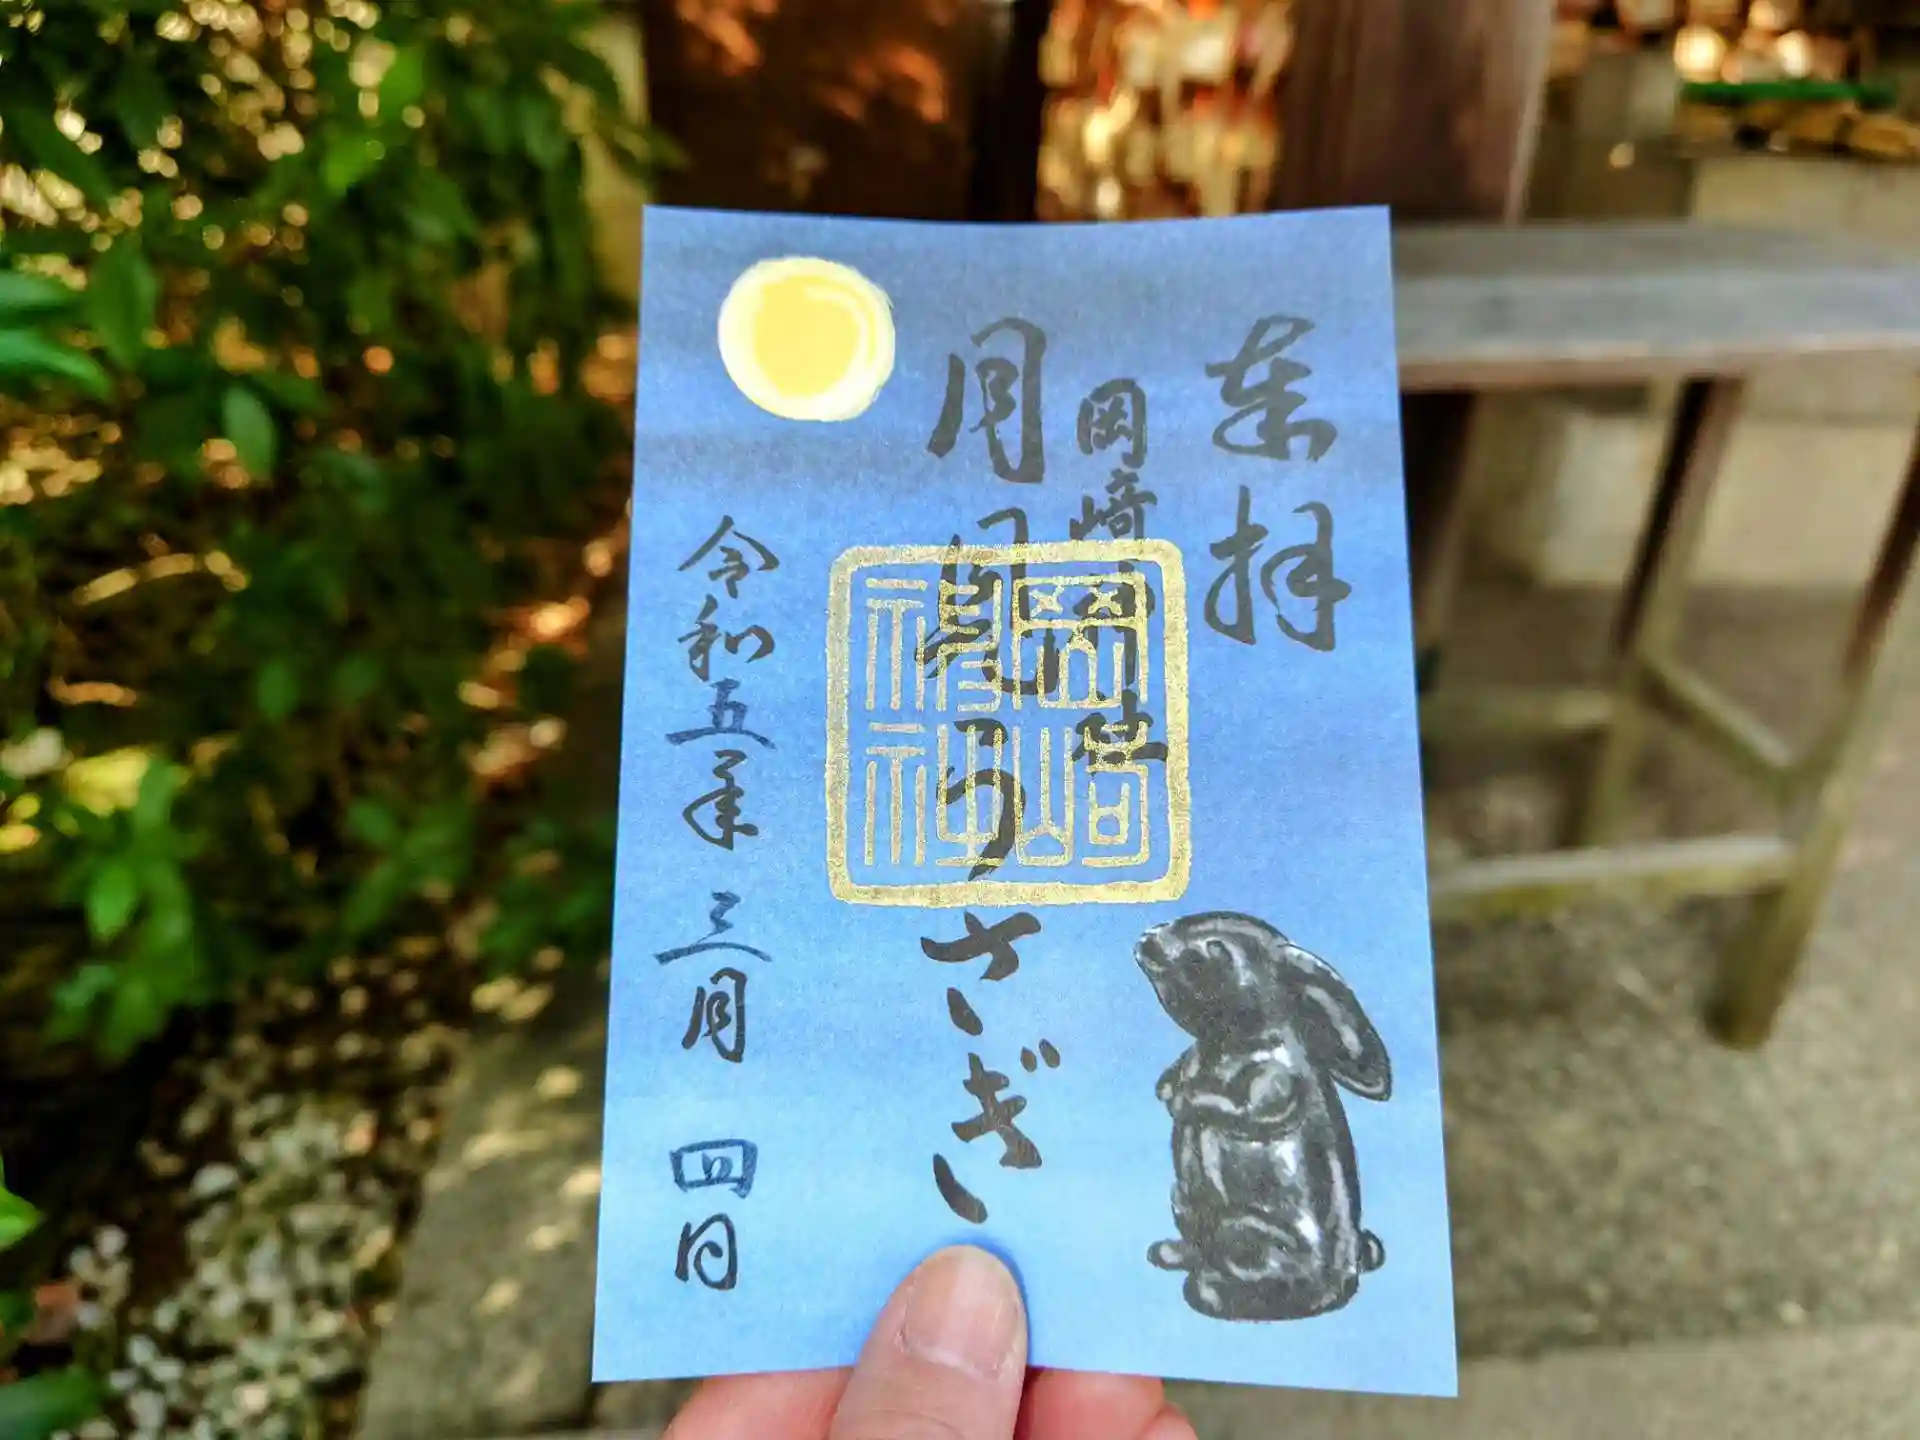 奉拝
岡﨑神社
月見うさぎ
岡﨑神社
令和五年 三月 四日